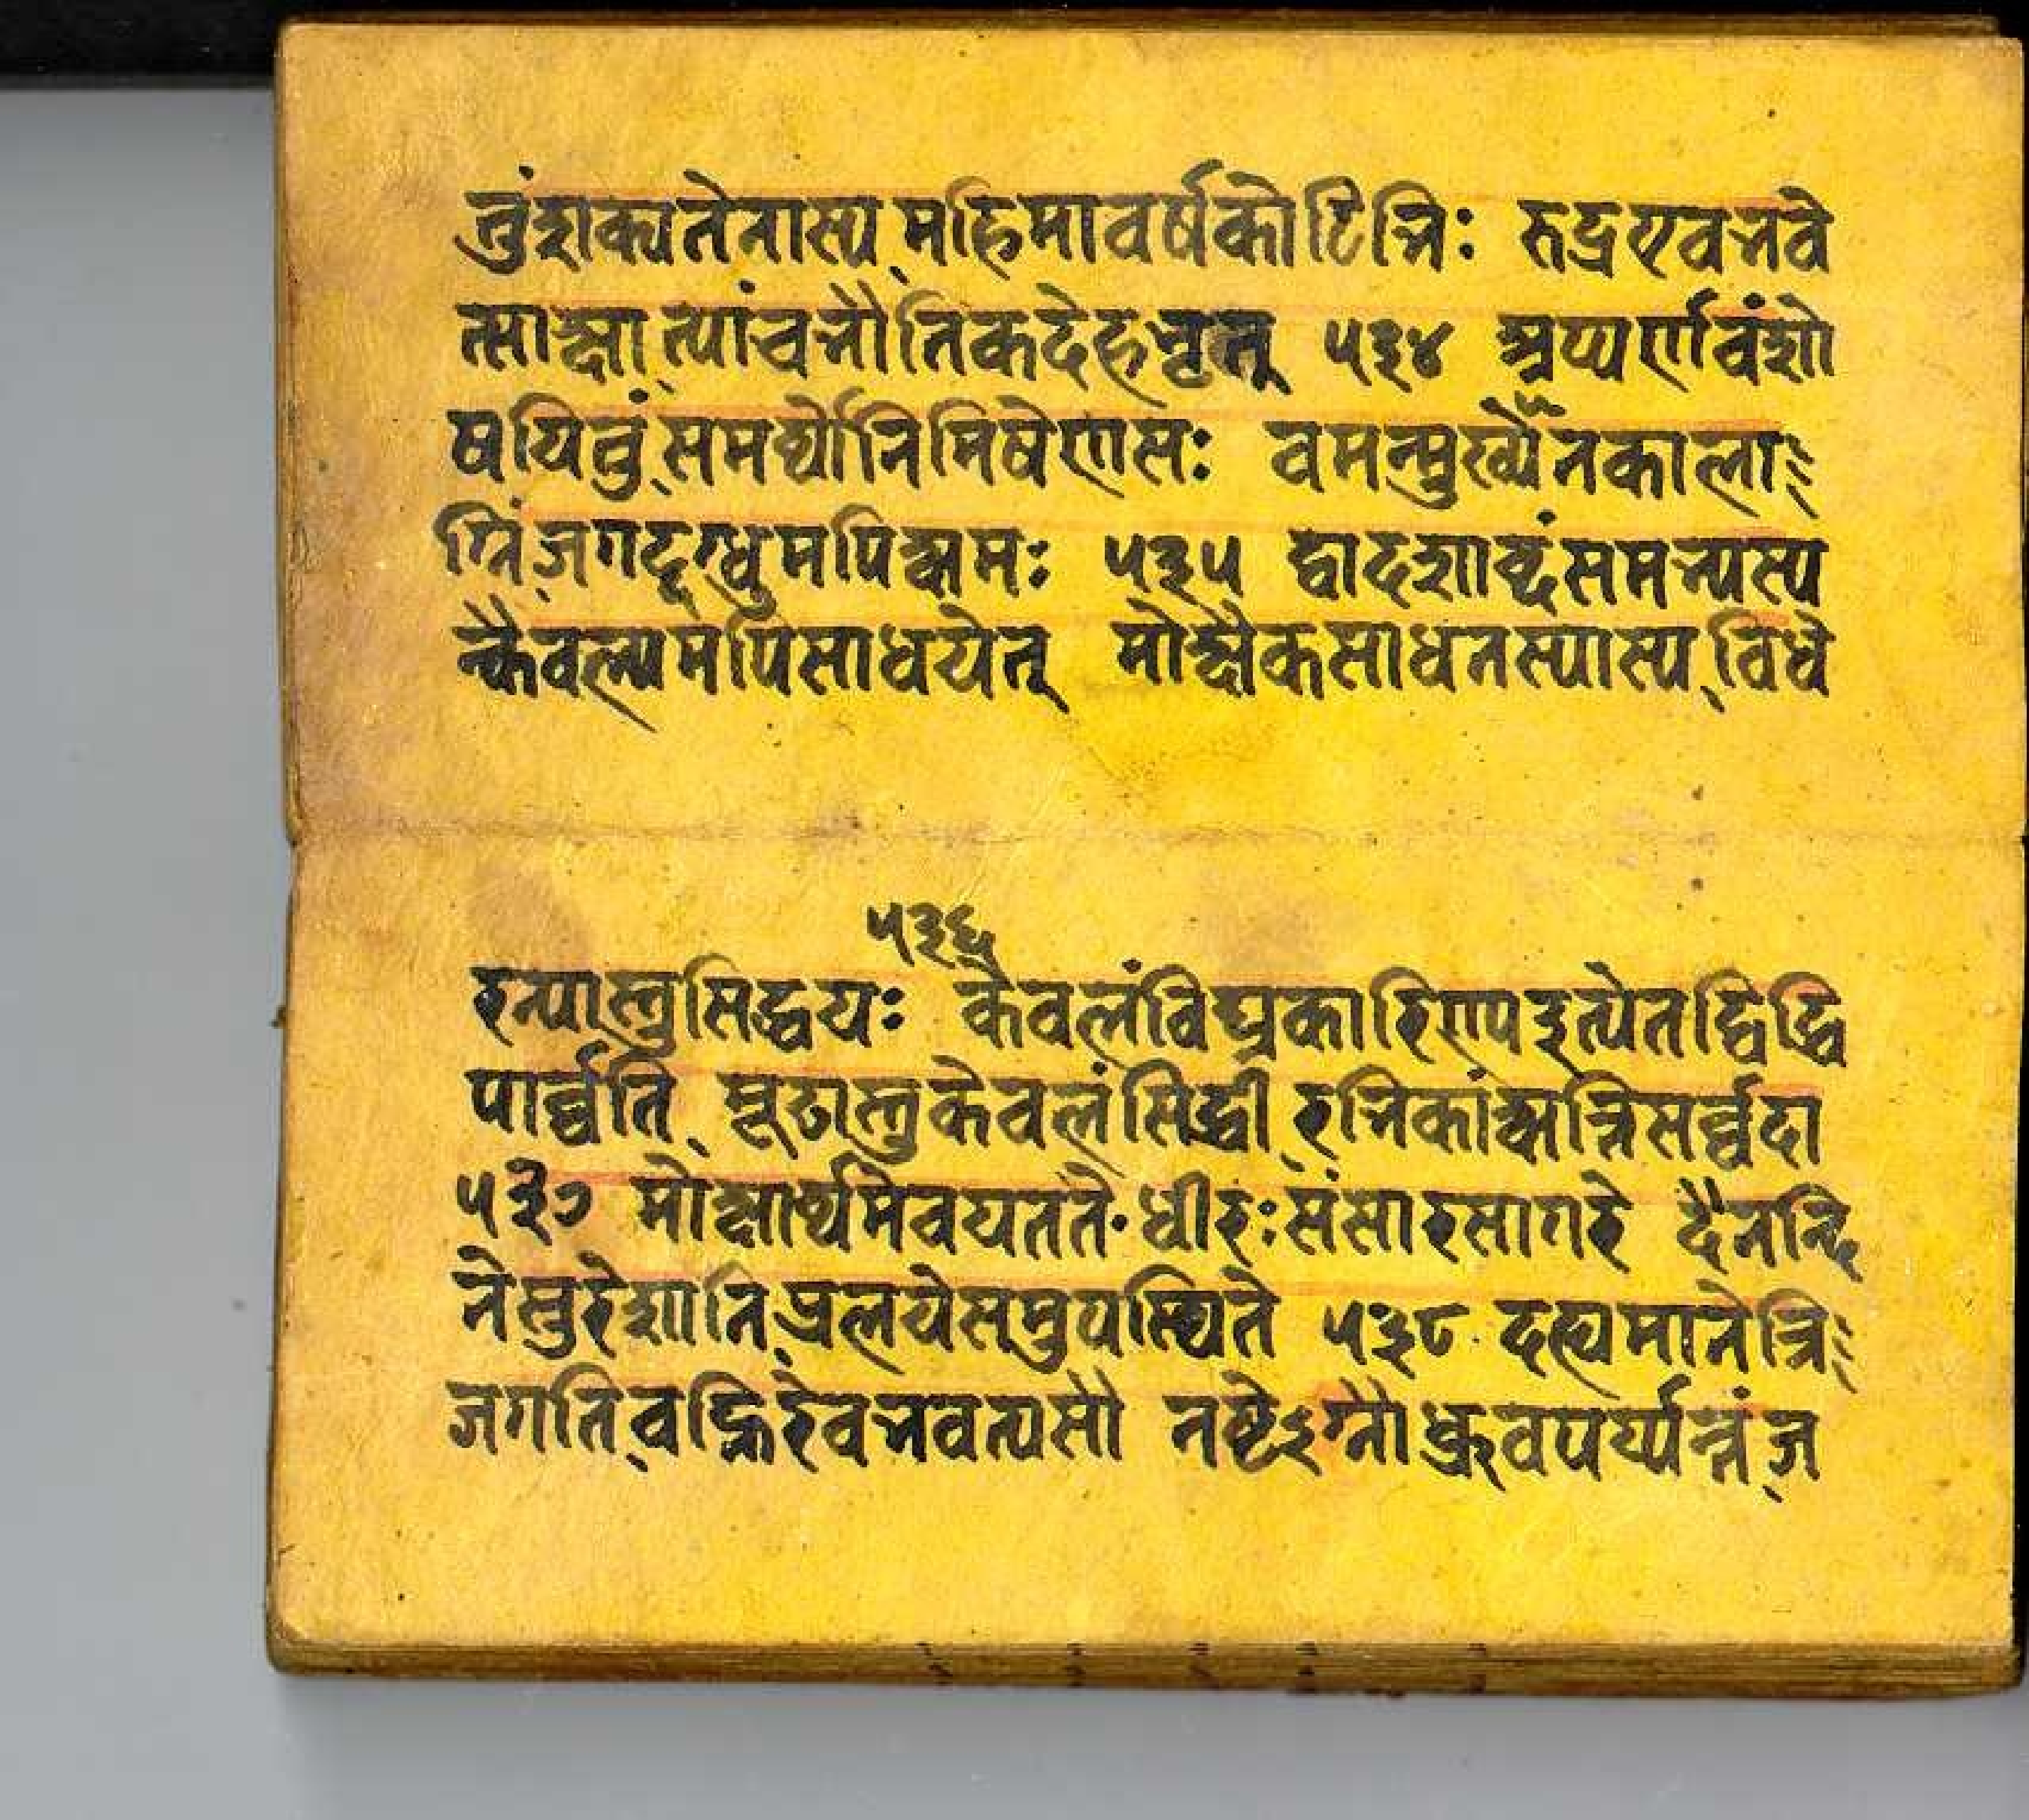 तुंशक्यतेनास्य महिमावर्षकोटिभिः रुद्रएवभवे
त्साक्षात्पांचभौतिकदेहभृत् ५३४ अप्यर्णवंशो
षयितुंसमर्थ्योनिमिषेणसः वमन्मुखेनकाला
ग्निंजगद्दग्धुमपिक्षमः ५३५ द्वादशाब्दंसमभ्यस्य
न्कैवल्यमपिसाधयेत् मोक्षैकसाधनस्यास्य विधे
५३६
रन्यास्तुसिद्धयः केवलंविघ्नकारिण्यइत्येतद्विद्धि
पार्व्वति मूढास्तुकेवलंसिद्धीरभिकांक्षन्तिसर्व्वदा
५३७ मोक्षार्थमेवयतते धीरःसंसारसागरे दैनन्दि
नेसुरेशानि प्रलयेसमुपस्थिते ५३८ दह्यमानेत्रि
जगतिवह्निरेवभवत्यसौ नष्टेऽग्नौध्रुवपर्य्यन्तंज